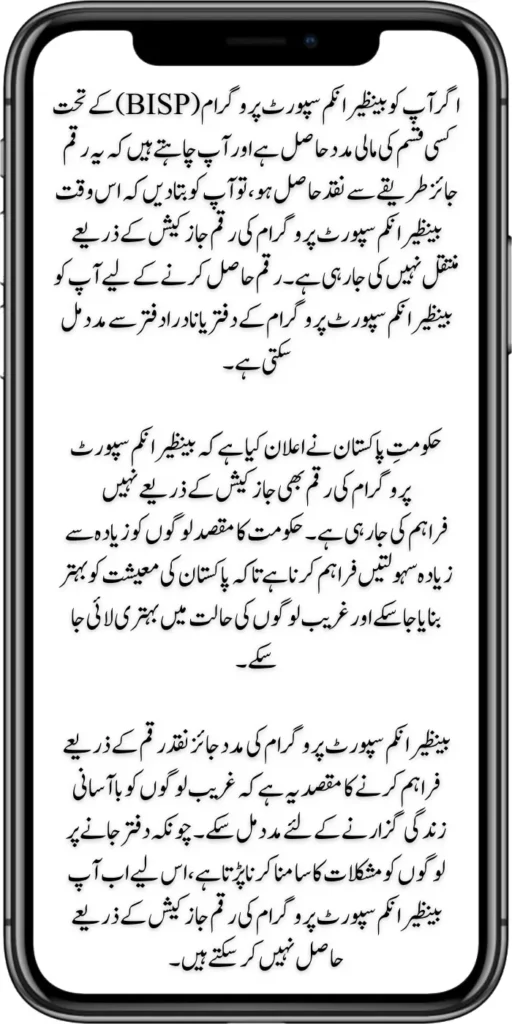 اگر آپ کو بینظیر انکم سپورٹ پروگرام (BISP) کے تحت
کسی قسم کی مالی مدد حاصل ہے اور آپ چاہتے ہیں کہ یہ رقم
جائز طریقے سے نقد حاصل ہو، تو آپ کو بتا دیں کہ اس وقت
بینظیر انکم سپورٹ پروگرام کی رقم جاز کیش کے ذریعے
منتقل نہیں کی جا رہی ہے۔ رقم حاصل کرنے کے لیے آپ کو
بینظیر انکم سپورٹ پروگرام کے دفتر یا نادرا دفتر سے مدد مل
سکتی ہے۔
حکومتِ پاکستان نے اعلان کیا ہے کہ بینظیر انکم سپورٹ
پروگرام کی رقم بھی جاز کیش کے ذریعے نہیں
فراہم کی جا رہی ہے۔ حکومت کا مقصد لوگوں کو زیادہ سے
زیادہ سہولتیں فراہم کرنا ہے تاکہ پاکستان کی معیشت کو بہتر
بنایا جا سکے اور غریب لوگوں کی حالت میں بہتری لائی جا
سکے۔
بینظیر انکم سپورٹ پروگرام کی مدد جائز نقد رقم کے ذریعے
فراہم کرنے کا مقصد یہ ہے کہ غریب لوگوں کو باآسانی
زندگی گزارنے کے لئے مدد مل سکے۔ چونکہ دفتر جانے پر
لوگوں کو مشکلات کا سامنا کرنا پڑتا ہے، اس لیے اب آپ
بینظیر انکم سپورٹ پروگرام کی رقم جاز کیش کے ذریعے
حاصل نہیں کر سکتے ہیں۔